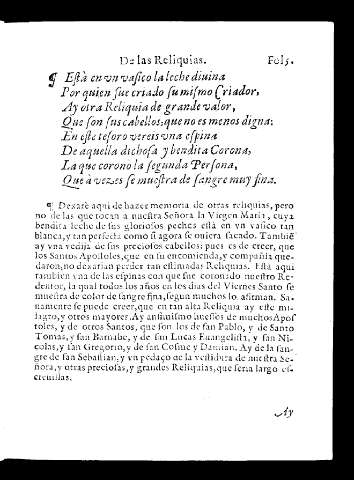 De las Reliquias. Fol 5.
¶ Està en vn vasico la leche diuina
Por quien fue criado su mismo Criador,
Ay otra Reliquia de grande valor,
Que son sus cabellos, que no es menos digna:
En este tesoro vereis vna espina
De aquella dichosa y bendita Corona,
La que corono la segunda Persona,
Que à vezes se muestra de sangre muy fina.
¶ Dexarè aqui de hazer memoria de otras reliquias, pero
no de las que tocan a nuestra Señora la Virgen Maria, cuya
bendita leche de sus gloriosos pechos està en vn vasico tan
blanca, y tan perfecta como si agora se ouiera sacado. Tambiẽ
ay vna vedija de sus preciosos cabellos: pues es de creer, que
los Santos Apostoles, que en su encomienda, y compañia que-
daron, no dexarian perder tan estimadas Reliquias. Està aqui
tambien vna de las espinas con que fue coronado nuestro Re-
dentor, la qual todos los años en los dias del Viernes Santo se
muestra de color de sangre fina, segun muchos lo afirman. Sa-
namente se puede creer, que en tan alta Reliquia ay este mi-
lagro, y otros mayores. Ay antissimo huessos de muchos Apos
toles, y de otros Santos, que son los de san Pablo, y de Santo
Tomas, y san Barnabe, y de san Lucas Euangelista, y san Ni-
colas, y san Gregorio, y de san Cosme y Damian. Ay de la san-
gre de san Sebastian, y vn pedaço de la vestidura de nuestra Se-
ñora, y otras preciosas, y grandes Reliquias, que seria largo es-
creuillas.
Ay